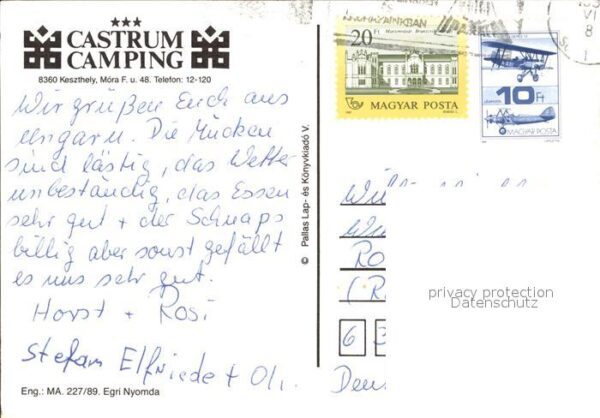 ★★★
CASTRUM
CAMPING
8360 Keszthely, Móra F. u. 48. Telefon: 12-120
Wir grüßen Euch aus
Ungarn. Die Mücken
sind lästig, das Wetter
unbeständig, das Essen
sehr gut + der Schnaps
billig aber sonst gefällt
es uns sehr gut.
Horst + Rosi
Stefan Elfriede + Oli.
Eng.: MA. 227/89. Egri Nyomda
© Pallas Lap- és Könyvkiadó V.
20 Ft
MAGYAR POSTA
10 Ft
MAGYAR POSTA
privacy protection
Datenschutz
6
Deu